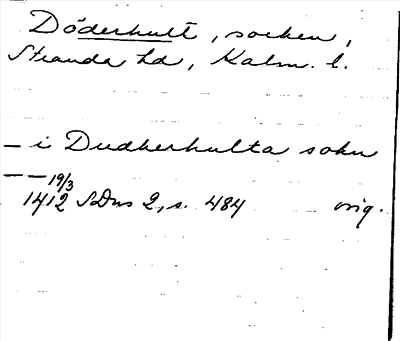 Döderhult, socken,
Stranda hd, Kalm. l.
– i Dudherhulta sokn
– – 19/3
1412 SDns 2, s. 484 orig.